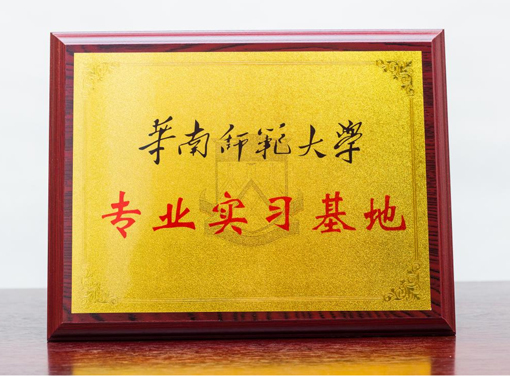 華南师範大學
专业实习基地